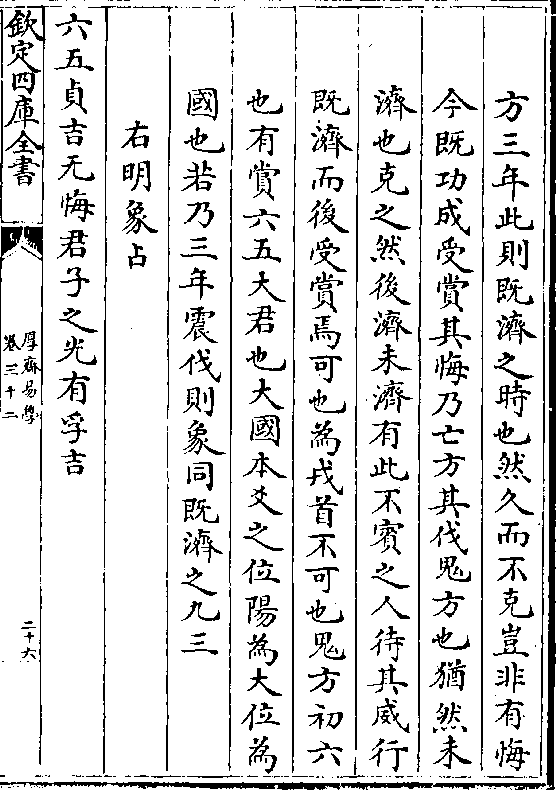 方三年此則既濟之時也然久而不克豈非有悔
今既功成受賞其悔乃亡方其伐鬼方也猶然未
濟也克之然後濟未濟有此不賓之人待其威行
既濟而後受賞焉可也為戎首不可也鬼方初六
也有賞六五大君也大國本爻之位陽為大位為
國也若乃三年震伐則象同既濟之九三
右明象占
六五貞吉无悔君子之光有孚吉
欽定四庫全書
厚齋易學
卷三十二
二十六